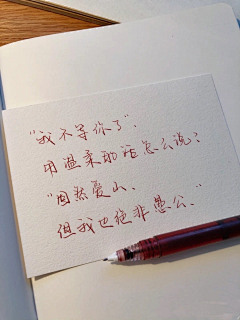 “我不等你了”，
用温柔的话怎么说？
“固然爱山、
但我也绝非愚公。”